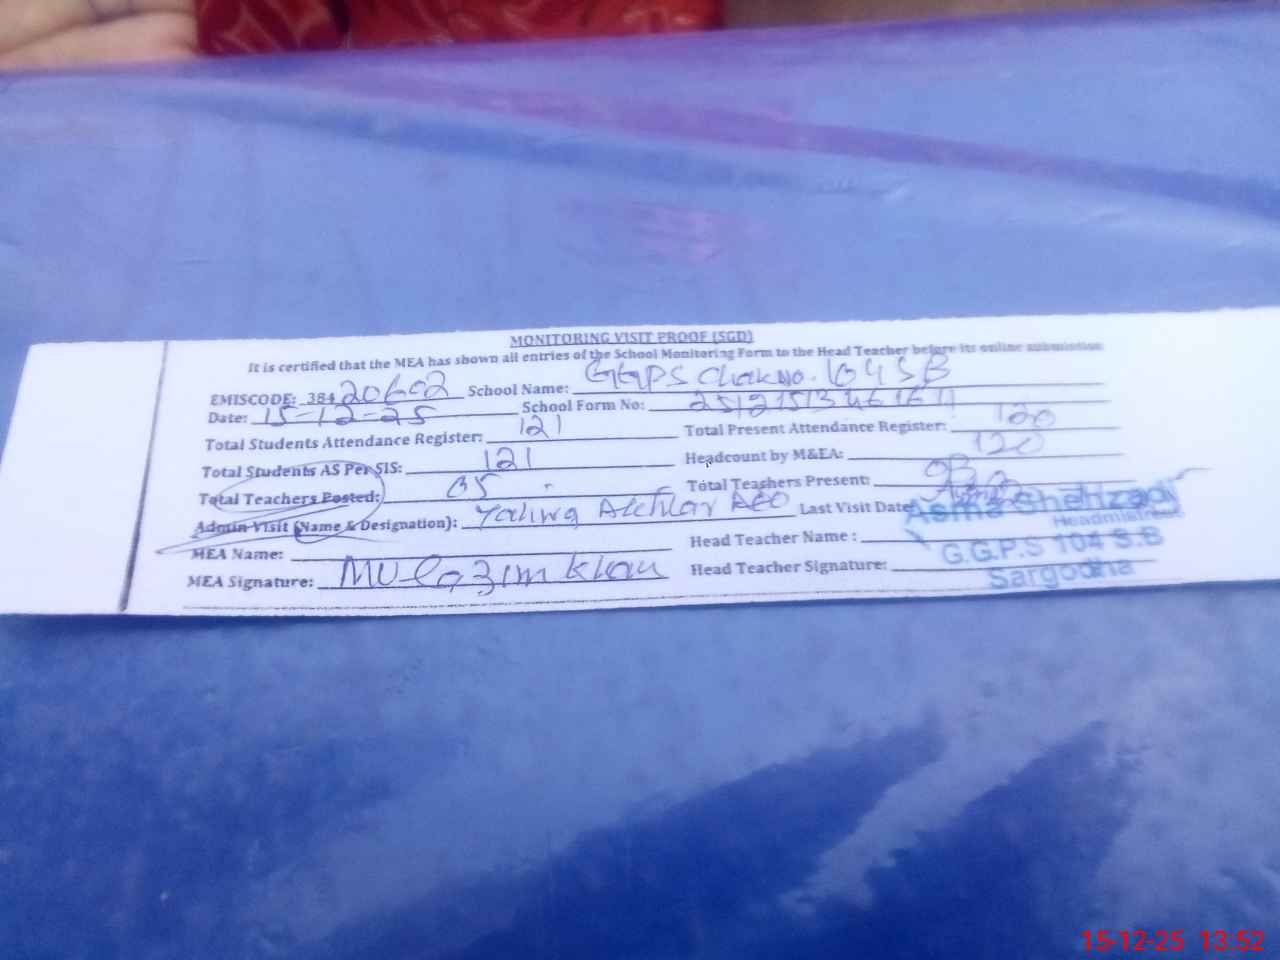 MONITORING VISIT PROOF (SGD)
It is certified that the MEA has shown all entries of the School Monitoring Form to the Head Teacher before its online submission
EMISCODE: 384 20602 School Name: GGPS Chak No. 104 SB
Date: 15-12-25 School Form No:
Total Students Attendance Register: 121 Total Present Attendance Register: 120
Total Students AS Per SIS: 121 Headcount by M&EA: 120
Total Teachers Posted: 05 Total Teachers Present: 03
Admin Visit (Name & Designation): Akhtar AEO Last Visit Date
MEA Name: Head Teacher Name :
MEA Signature: Mulazim Khan Head Teacher Signature:
Asma Shehzadi
Headmistress
G.G.P.S 104 S.B
Sargodha
15-12-25 13:52